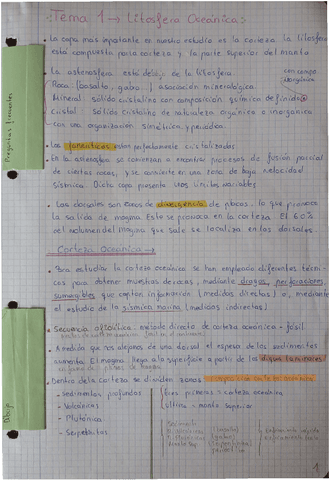 Tema 1 → Litosfera Oceánica:
· La capa mas importante en nuestro estudio es la corteza. La litosfera
está compuesta por la corteza y la parte superior del manto.
· La astenosfera está debajo de la litosfera.
Roca: (basalto, gabro) asociación mineralógica
Mineral: sólido cristalino con composición química definida
Cristal: sólido cristalino de naturaleza orgánica e inorgánica
con una organización simétrica y periódica.
· Las faneríticas están perfectamente cristalizadas
· En la astenosfera se comienzan a encontrar procesos de fusión parcial
de ciertas rocas, y se convierte en una zona de baja velocidad
sísmica. Dicha capa presenta unos límites variables
· Las dorsales son zonas de divergencia de placas, lo que provoca
la salida de magma. Esto se provoca en la corteza. El 60%
del volumen del magma que sale se localiza en las dorsales.
Corteza Oceánica →
· Para estudiar la corteza oceánica se han empleado diferentes técni-
cas para obtener muestras de rocas, mediante dragas, perforaciones,
sumergibles que captan información (medidas directas) o, mediante
el estudio de la sísmica marina (medidas indirectas)
· Secuencia ofiolítica: método directo de corteza oceánica fósil
· A medida que nos alejamos de una dorsal el espesor de los sedimentos
aumenta. El magma llega a la superficie a partir de los diques laminares
· Dentro de la corteza se dividen zonas:
- Sedimentos profundos
- Volcánicas
- Plutónica
- Serpentinitas
tres primeras = corteza oceánica
última = manto superior
Preguntas frecuentes
1